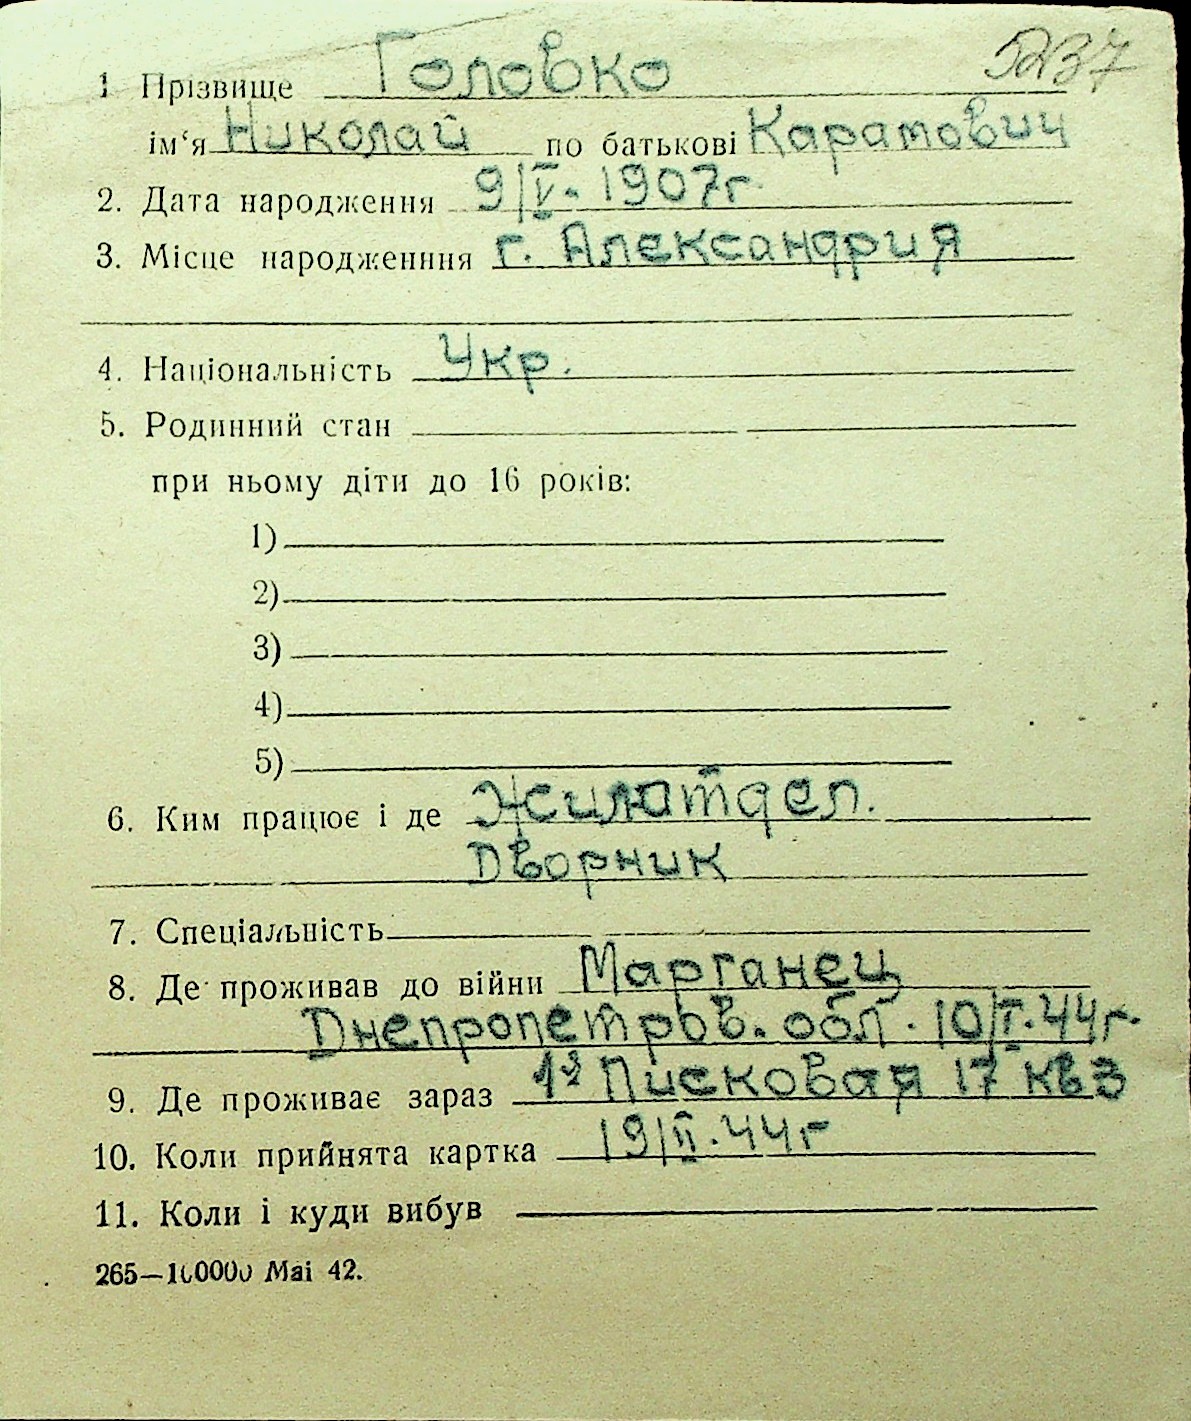 5237
1 Прізвище Головко
ім'я Николай по батькові Каратович
2. Дата народження 9/V. 1907г.
3. Місце народженння г. Александрия
4. Національність Укр.
5. Родинний стан
при ньому діти до 16 років:
1)
2)
3)
4)
5)
6. Ким працює і де Жилотдел.
Дворник
7. Спеціальність
8. Де проживав до війни Марганец
Днепропетров. обл. 10/I.44г.
9. Де проживає зараз Писковая 17 кв 3
10. Коли прийнята картка 19/II.44г
11. Коли і куди вибув
265—100000 Mai 42.